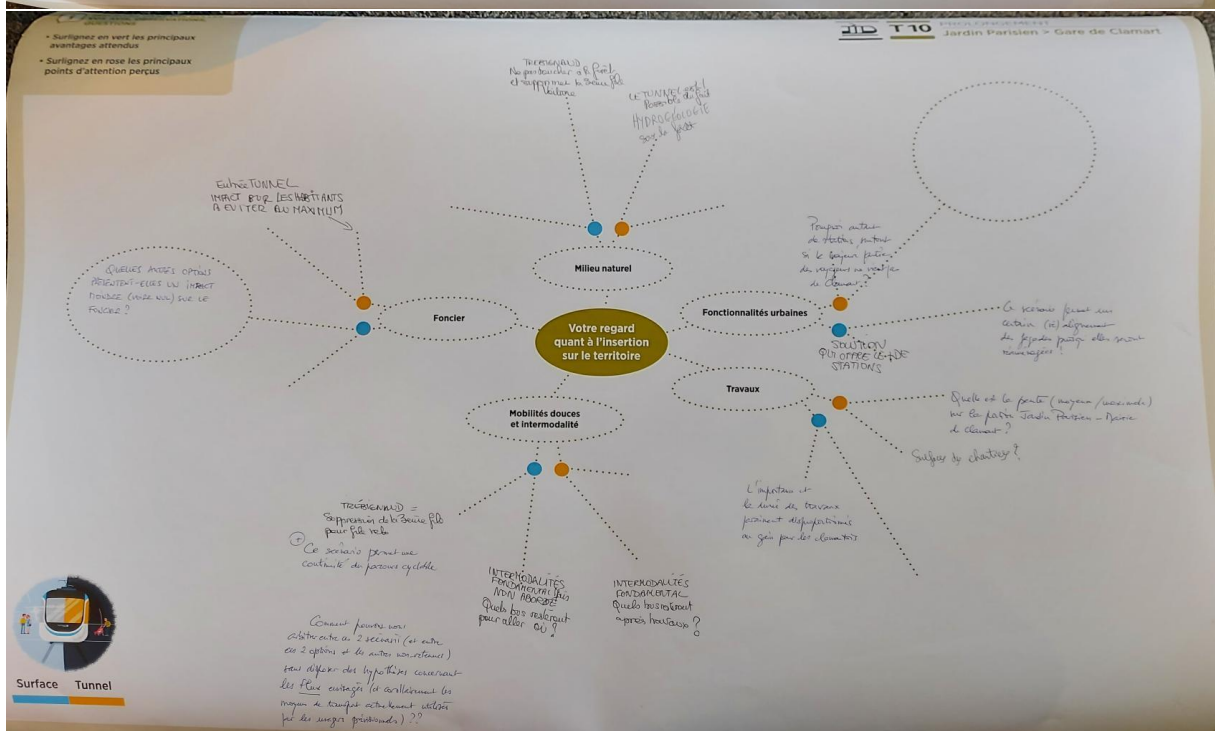 QUESTIONS
• Surlignez en vert les principaux
avantages attendus
• Surlignez en rose les principaux
points d'attention perçus
T10
PROLONGEMENT
Jardin Parisien > Gare de Clamart
Ne pas toucher à la forêt
et supprimer la 3eme file
LE TUNNEL est-il
Possible du fait
HYDROGÉOLOGIE
sous la forêt
Entrée TUNNEL
IMPACT SUR LES HABITANTS
A EVITER AU MAXIMUM
QUELLES AUTRES OPTIONS
PRÉSENTENT-ELLES UN IMPACT
MOINDRE (VOIRE NUL) SUR LE
FONCIER ?
Milieu naturel
Foncier
Votre regard
quant à l'insertion
sur le territoire
Fonctionnalités urbaines
Pourquoi autant
de stations, surtout
si la majeure partie
des voyageurs ne vient pas
de Clamart ?
SOLUTION
QUI OFFRE LE + DE
STATIONS
Ce scénario permet un
certain (ré)alignement
des façades puisqu'elles seront
réaménagées ?
Travaux
Quelle est la pente (moyenne / maximale)
sur la portion Jardin Parisien - Mairie
de Clamart ?
Surface des chantiers ?
L'importance et
la durée des travaux
paraissent disproportionnés
au gain pour les clamartois
Mobilités douces
et intermodalité
Suppression de la 3eme file
pour file velo
+ Ce scénario permet une
continuité du parcours cyclable
INTERMODALITÉS
FONDAMENTAL mais
NON ABORDÉ
Quels bus resteront
pour aller OÙ ?
INTERMODALITÉS
FONDAMENTAL
Quels bus resteront
après travaux ?
Comment pouvons nous
arbitrer entre ces 2 scénarii (et entre
ces 2 options et les autres non-retenues)
sans disposer des hypothèses concernant
les flux envisagés (et corollairement les
moyens de transport actuellement utilisés
par les usagers prévisionnels) ??
Surface Tunnel